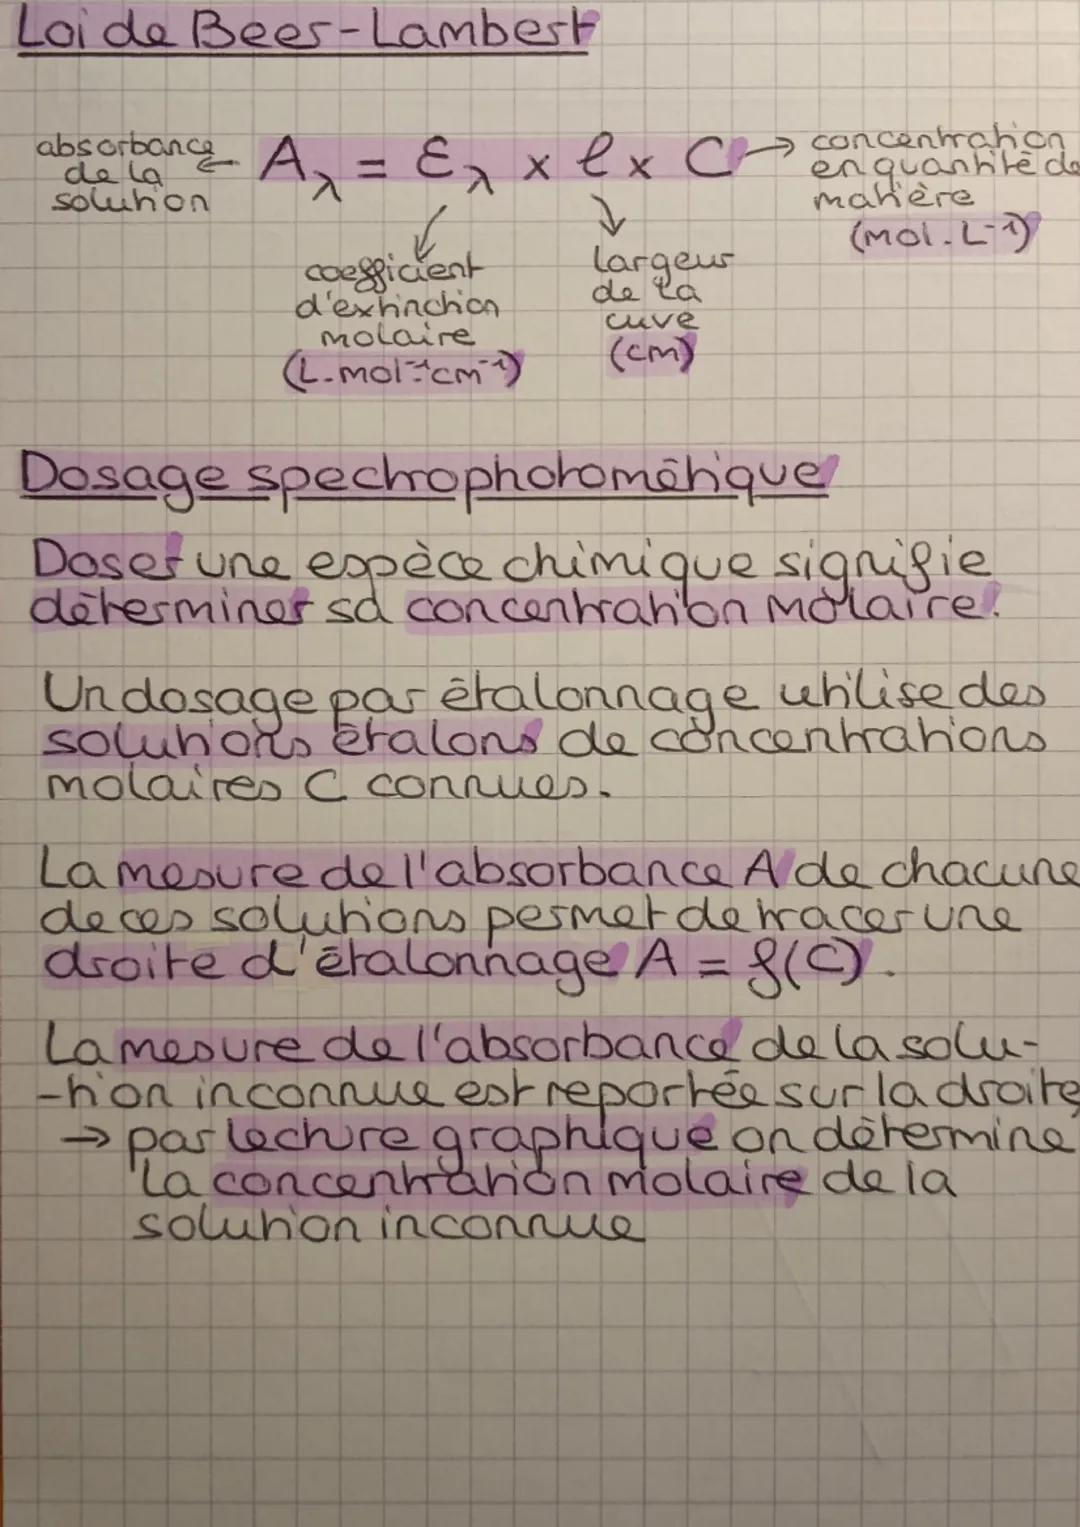 Loi de Beer-Lambert
absorbance de la solution ← Aλ = Ɛλ × l × C → concentration en quantité de matière (mol.L⁻¹)
↓ coefficient d'extinction molaire (L.mol⁻¹cm⁻¹)
↓ largeur de la cuve (cm)
Dosage spectrophotométrique
Doser une espèce chimique signifie
déterminer sa concentration molaire.
Un dosage par étalonnage utilise des
solutions étalons de concentrations
molaires C connues.
La mesure de l'absorbance A de chacune
de ces solutions permet de tracer une
droite d'étalonnage A = f(C).
La mesure de l'absorbance de la solu-
-tion inconnue est reportée sur la droite
→ par lecture graphique on détermine
la concentration molaire de la
solution inconnue